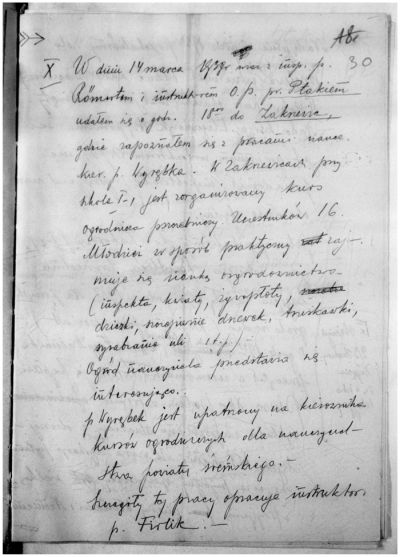 A8.
30
X W dniu 14 marca 1937r wraz z insp. p.
Römertem i instruktorem O.p. pr. Ptakiem
udałem się o godz. 18 do Zakrzewic,
gdzie zapoznałem się z pracami naucz.
kier. p. Wyrębka. W Zakrzewicach przy
szkole I-, jest zorganizowany kurs
ogrodniczo Uczestników 16.
Młodzież w sposób praktyczny zaj-
muje się nauką ogrodnictwa
(inspekta, kwiaty, żywopłoty,
dziczki, drzewek, truskawki,
wyrabianie uli i t.p.) -
Ogród nauczyciela przedstawia się
interesująco. -
p. Wyrębek jest upatrzony na kierownika
kursów ogrodniczych dla nauczyciel-
stwa powiatu śremskiego. -
Szczegóły tej pracy opracuje instruktor.
p. Firlik. -